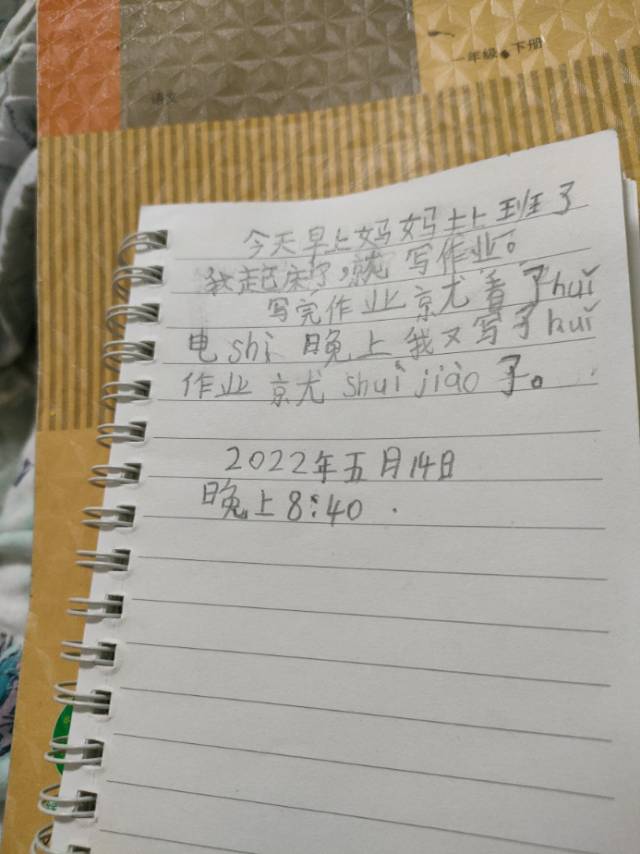 语文
一年级 下册
今天早上妈妈去上班了
我起床了,就写作业。
写完作业京尤看了huǐ
电shì 晚上我又写了huǐ
作业京尤shuì jiào了。
2022年五月14日
晚上8:40.